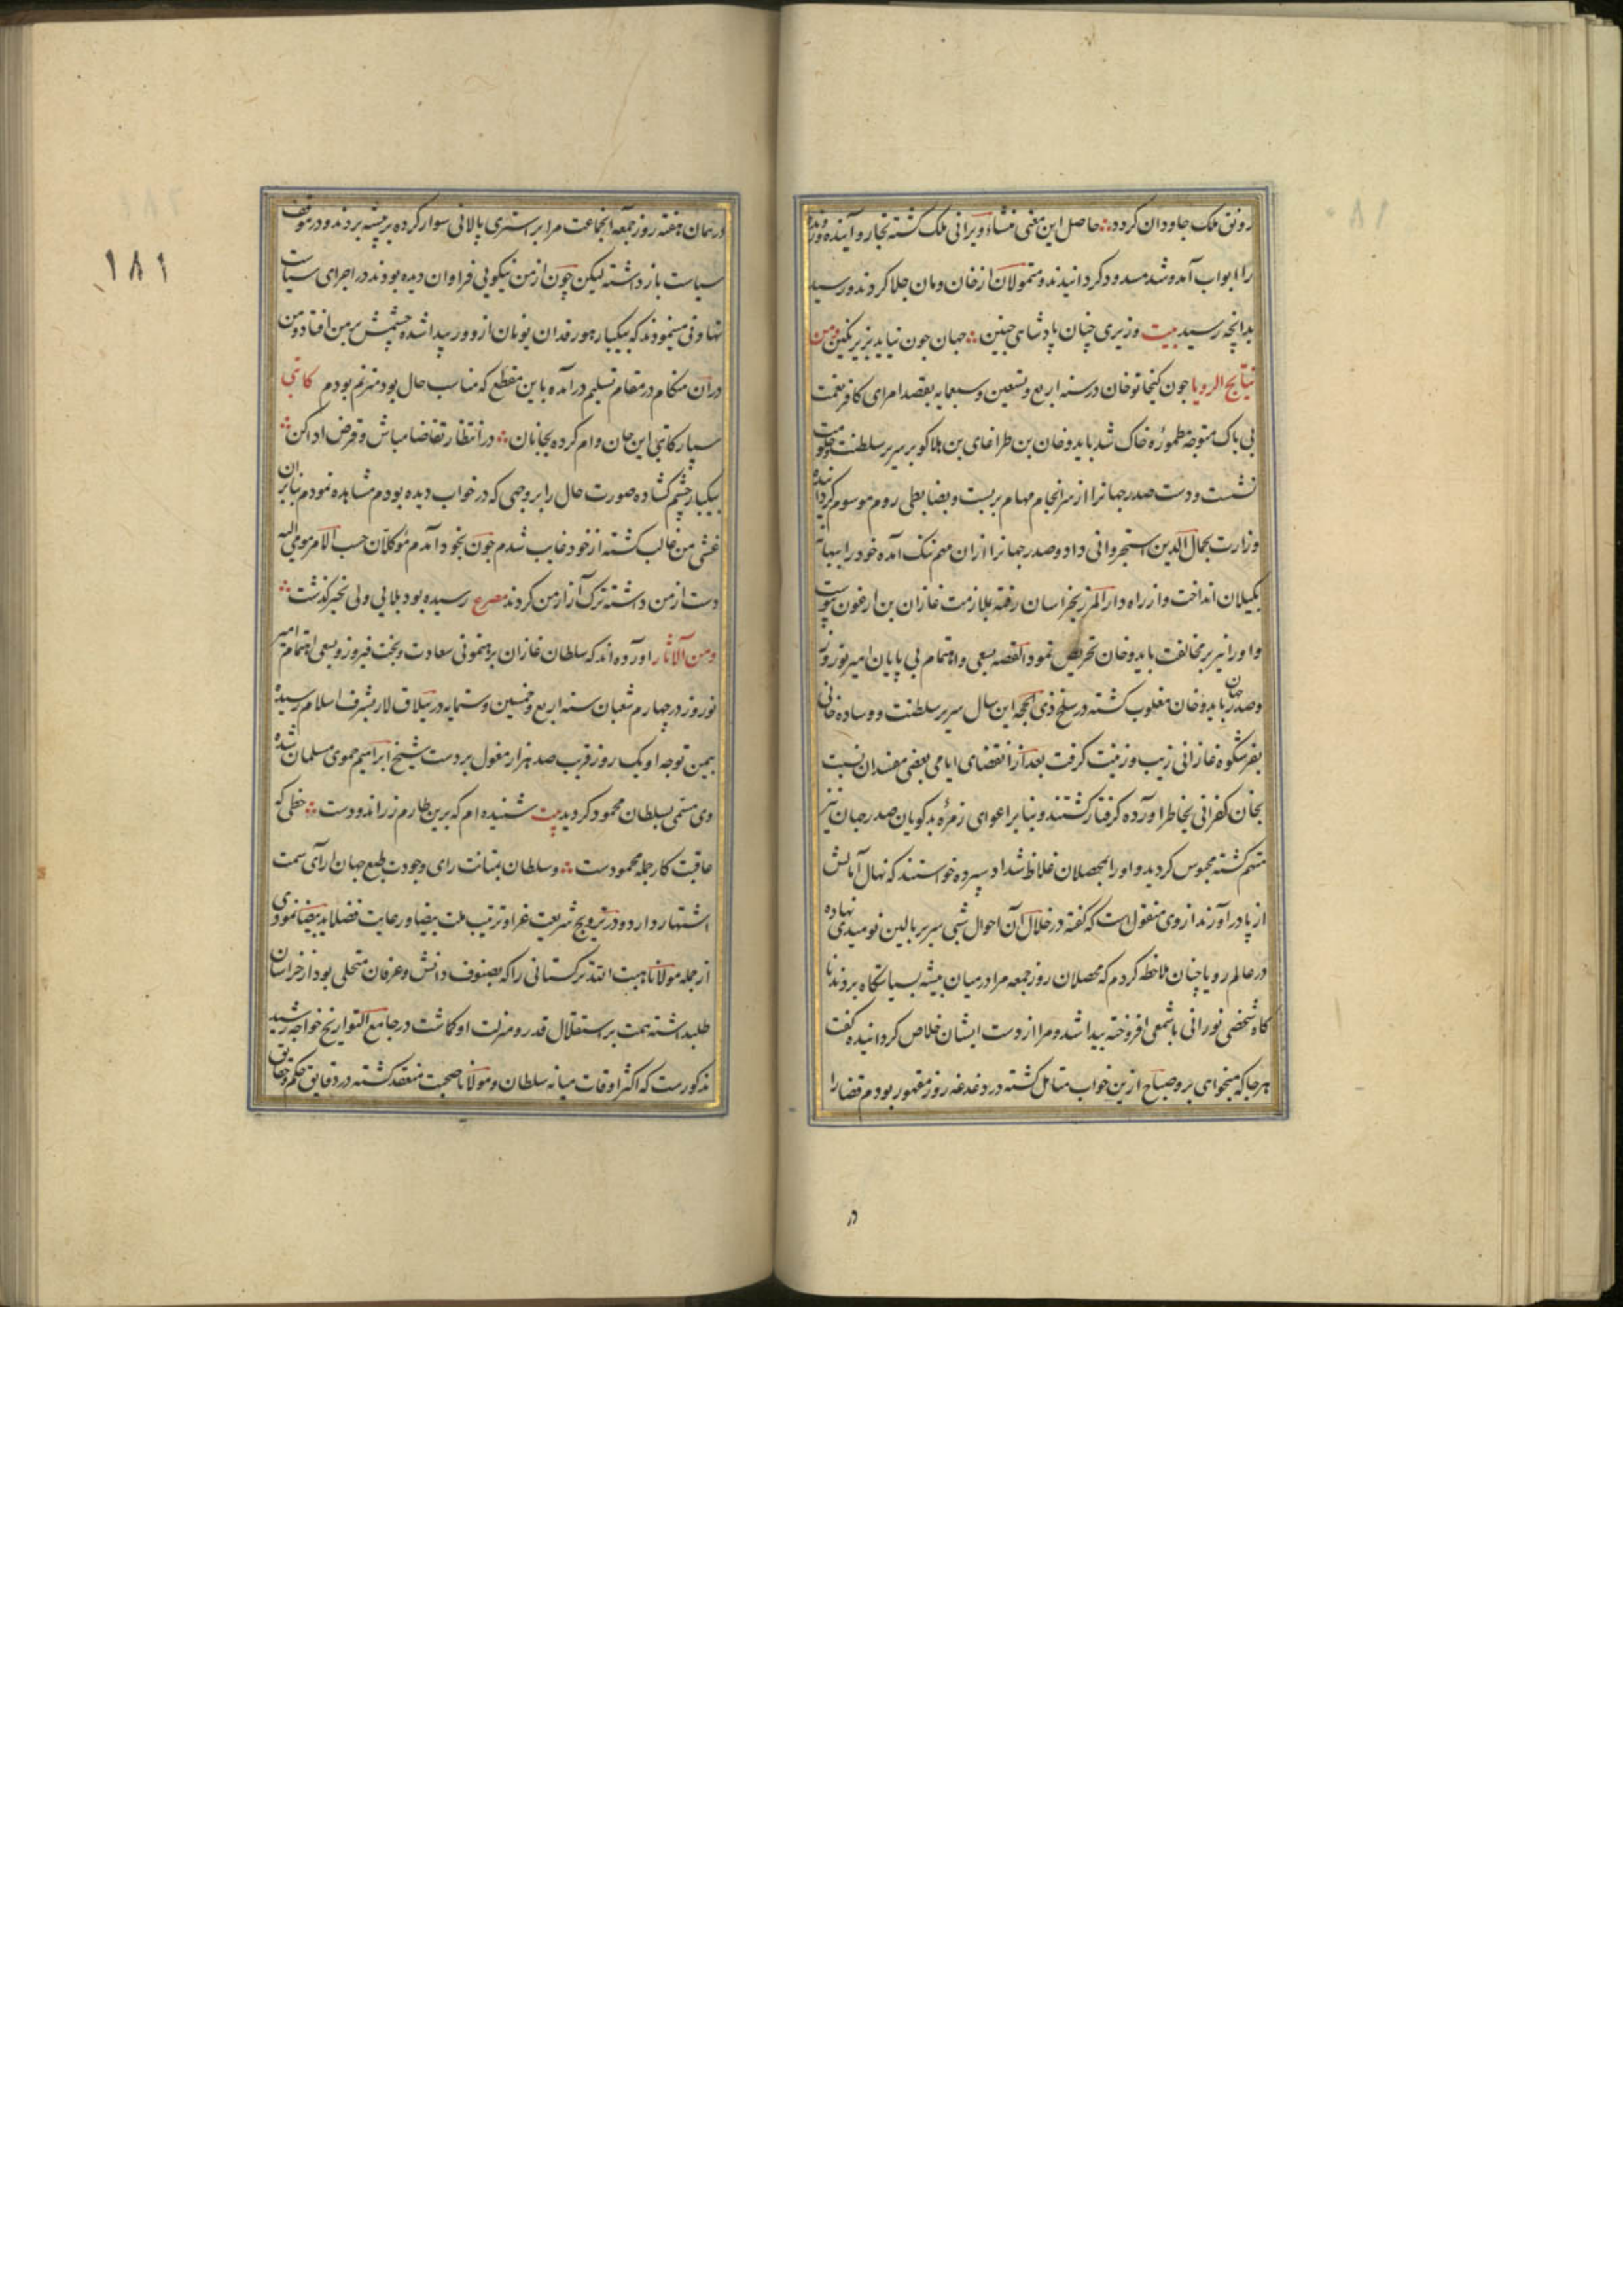 رونق ملک جاودان کردد ؞ حاصل این معنی منشاء ویرانی ملک کشته تجار و آینده و رونده
را ابواب آمد و شد مسدود کردانیدند و متمولان از خان و مان جلا کردند و رسید
بدانچه رسید بیت وزیری چنان پادشاهی چنین ؞ جهان چون نیاید بزیر نکین ومن
نتایج الرویا چون کیخاتو خان در سنه اربع و تسعین و سبعمایه بقصد امرای کافر نعمت
بی باک متوجه مطموره خاک شد بایدو خان بن طراغای بن هلاکو بر سریر سلطنت و حکومت
نشست و دست صدر جهانرا از سرانجام مهام بر بست و بضابطی روم موسوم کردانیده
وزارت بجمال الدین دستجردانی داد و صدر جهانرا از ان مهم ننک آمده خود را ببهانه
بکیلان انداخت و از راه دار المرز بخراسان رفته بملازمت غازان بن ارغون پیوست
و او را نیز بر مخالفت بایدو خان تحریض نمود القصه بسعی و اهتمام بی پایان امیر نوروز
و صدر جهان بایدو خان مغلوب کشته در سلخ ذی الحجه این سال سریر سلطنت و وساده خانی
بفر شکوه غازانی زیب و زینت کرفت بعد از انقضای ایامی بعضی مفسدان نسبت
بخان کفرانی بخاطر اورده کرفتار کشتند و بنا بر اغوای زمره بدکویان صدر جهان نیز
متهم کشته محبوس کردید و او را بمحصلان غلاظ شداد سپرده خواستند که نهال آمالش
از پا در آورند از وی منقول است که کفت در خلال آن احوال شبی سر بر بالین نومیدی نهاده
در عالم رویا چنان ملاحظه کردم که محصلان روز جمعه مرا در میان بیشه بسیاستکاه بردند نا
کاه شخصی نورانی با شمعی افروخته پیدا شد و مرا از دست ایشان خلاص کردانیده کفت
هر جا که میخواهی برو صباح ازین خواب متامل کشته در دغدغه روز مقهور بودم قضا را
در
۱۸۱
در همان هفته روز جمعه آنجماعت مرا بر استری پالانی سوار کرده بر بیشه بردند و در موقف
سیاست باز داشته لیکن چون از من نیکویی فراوان دیده بودند در اجرای سیاست
تهاونی مینمودند که بیکبار هورقدان یونان از دور پیدا شده چشمش بر من افتاد و من
در آن هنکام در مقام تسلیم در آمده باین مقطع که مناسب حال بود مترنم بودم کاتبی
سپار کاتبی این جان وام کرده بجانان ؞ در انتظار تقاضا مباش و قرض ادا کن ؞
بیکبار چشم کشاده صورت حال را بر وجهی که در خواب دیده بودم مشاهده نمودم بنابران
غشی من غالب کشته از خود غایب شدم چون بخود آمدم موکلان حسب الامر مومی الیه
دست از من داشته ترک آزار من کردند مصرع رسیده بود بلایی ولی بخیر کذشت ؞
ومن الآثار آورده اند که سلطان غازان برهنمونی سعادت و بخت فیروز و بسعی اهتمام امیر
نوروز در چهارم شعبان سنه اربع و خمسین و ستمایه در ییلاق لار بشرف اسلام رسیده
بیمن توجه او یک روز قریب صد هزار مغول بر دست شیخ ابراهیم حموی مسلمان شده
وی مسمی بسلطان محمود کردید بیت شنیده ام که برین طارم زر اندودست ؞ خطی که
عاقبت کار جمله محمودست ؞ و سلطان بمتانت رای و جودت طبع جهان آرای سمت
اشتهار دارد و در ترویج شریعت غرا و تربیت ملت بیضا و رعایت فضلا ید بیضا نمودی
از جمله مولانا هبت الله ترکستانی را که بصنوف دانش و عرفان متحلی بود از خراسان
طلبداشته همت بر استقلال قدر و منزلت او کماشت در جامع التواریخ خواجه رشید
مذکورست که اکثر اوقات میانه سلطان و مولانا صحبت منعقد کشته در دقایق حکم و حقایق